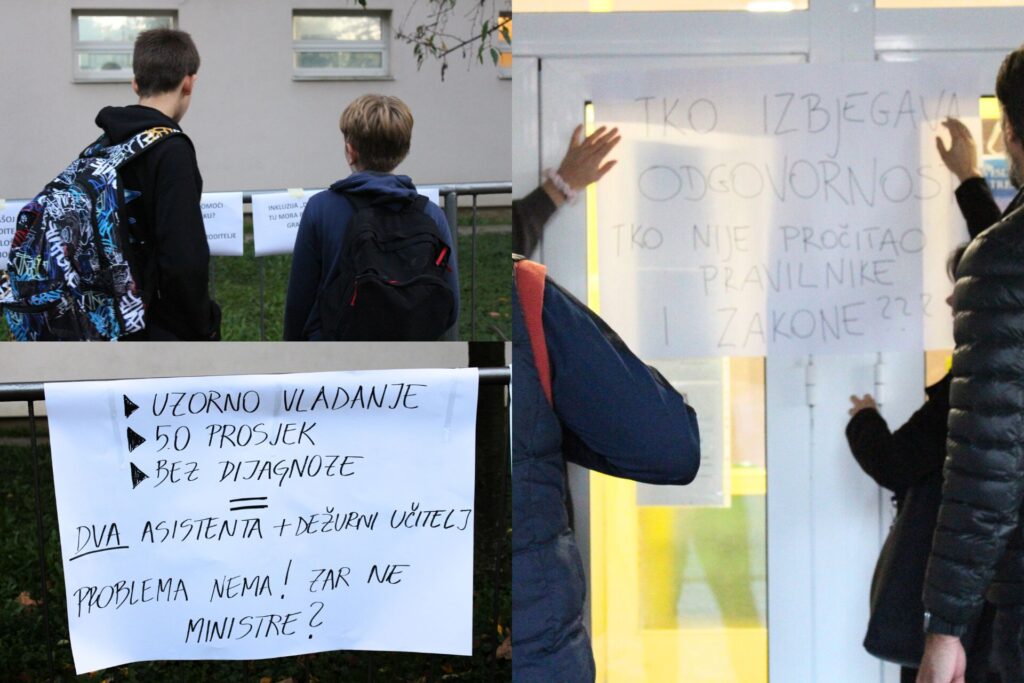 OMOĆI
RODITELJE
INKLUZIJA
TU MORA
GRA
▶ UZORNO VLADANJE
▶ 5.0 PROSJEK
▶ BEZ DIJAGNOZE
=
DVA ASISTENTA + DEŽURNI UČITELJ
PROBLEMA NEMA! ZAR NE
MINISTRE?
TKO IZBJEGAVA
ODGOVORNOS
TKO NIJE PROČITAO
PRAVILNIKE
I ZAKONE???